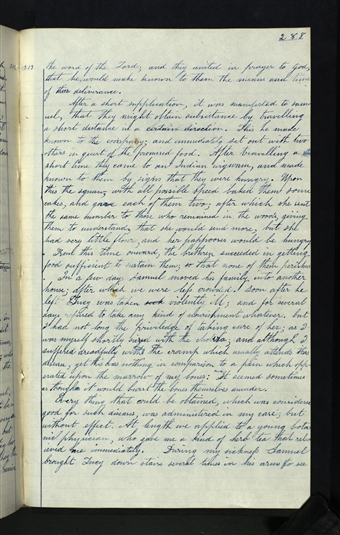 288
the word of the Lord; and they united in prayer to God,
that he would make known to them the means and time
of their deliverance.
After a short supplication, it was manifested to Sam-
uel, that they might obtain substance by travelling
a short distance in a certain direction. This he made
known to the company; and immediately set out with two
others in quest of the promised food. After travelling a
short time they came to an Indian wigwam, and made
known to them by signs that they were hungry. Upon
this the squaw, with all possible speed baked them some
cakes, and gave each of them two; after which she sent
the same number to those who remained in the woods, giving
them to understand, that she would send more, but she
had very little flour, and her pappooses would be hungry.
From this time onward, the brethren succeeded in getting
food sufficient to sustain them; so that none of them perished.
In a few days Samuel moved his family into another
house; after which we were left crowded. Soon after he
left Lucy was taken violently ill; and for several
days refused to take any kind of nourishment whatever. but
I had not long the priviledge of taking care of her; as I
was myself shortly seized with the cholera; and although I
suffered dreadfully with the cramp which usually attends this
disease, yet this was nothing in comparison to a pain which ope-
rated upon the marrow of my bones: It seemed sometimes
as though it would burst the bones themselves asunder.
Every thing that could be obtained, which was considered
good for such disease, was administered in my case; but
without effect. At length we applied to a young botan-
ic physician, who gave me a kind of herb tea that reli-
eved me immediately. During my sickness Samuel
brought Lucy down stairs several times in his arms to see